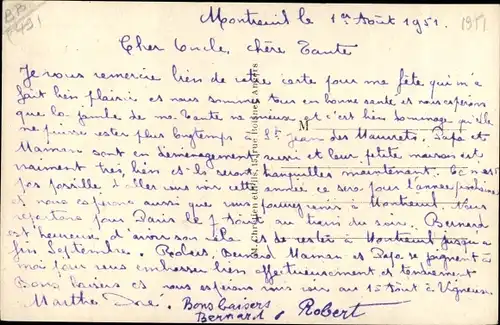 Montreuil le 1er Août 1951
1951
Cher Oncle, chère Tante
Je vous remercie bien de votre carte pour ma fête qui m'a
fait bien plaisir et nous sommes tous en bonne santé et nous espérons
que la jambe de ma Tante va mieux et c'est bien dommage qu'elle
ne puisse rester plus longtemps à St Jean des Mauvrets. Papa et
Maman sont en déménagement aussi et leur petite maison est
vraiment très bien et ils seront tranquilles maintenant. Ce n'est
pas possible d'aller vous voir cette année ce sera pour l'année prochaine
et nous espérons aussi que vous pourrez venir à Montreuil. Nous
repartons pour Paris le Août au train du soir. Bernard
est heureux d'avoir son vélo et de rester à Montreuil jusqu'à
fin Septembre. Bernard Maman et Papa se joignent à
moi pour vous embrasser bien affectueusement et tendrement
Bons baisers et nous espérons vous voir au 15 Août à Vigneux
Marthe
Bons baisers
Bernard
Robert